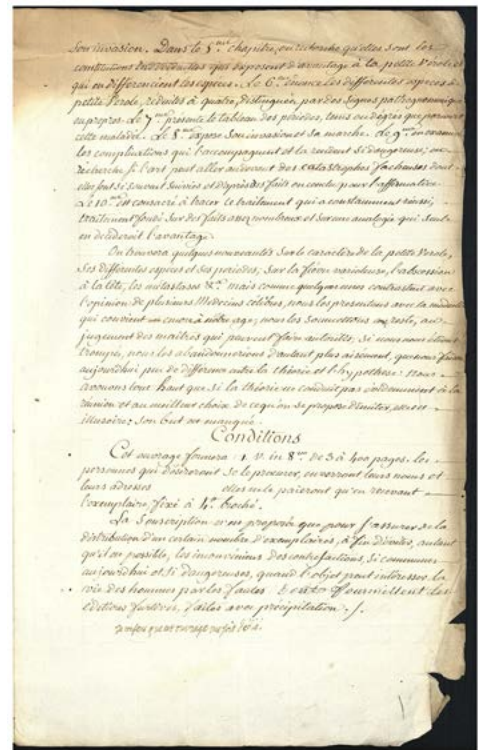 Son invasion. Dans le 5.me chapitre, on recherche qu'elles sont les
constitutions qui exposent d'avantage à la petite Verole, et
qui en différencient les especes. Le 6.me énonce les différentes especes de
petite Verole, réduites à quatre, distinguées par des signes pathognomoniques
ou propres. Le 7.me présente le tableau des périodes, tems ou dégrés que parcourt
cette maladie. Le 8.me expose son invasion et sa marche. Le 9.me en examine
les complications qui l'accompagnent et la rendent si dangereuse; on
recherche si l'art peut aller audevant des catastrophes facheuses dont
elles sont si souvent suivies et d'après des faits on conclu pour l'affirmative.
Le 10.me est consacré à tracer le traitement qui a constamment réussi;
traitement fondé sur des faits assez nombreux et sur une analogie qui seule
en decideroit l'avantage.
On trouvera quelques nouveautés sur le caractère de la petite Verole,
ses différentes especes et ses periodes; sur la fievre varioleuse, l'abscession
à la tête, les métastases &.a mais comme quelques unes contrastent avec
l'opinion de plusieurs Medecins célèbres, nous les presentons avec la modestie
qui convient encore à notre age; nous les soumettons au reste, au
jugement des maîtres qui peuvent faire autorité; si nous nous étions
trompés, nous les abandonnerions d'autant plus aisément, que nous
aujourd'hui peu de difference entre la théorie et l'hypothese: nous
avouons tout haut que si la théorie ne conduit pas évidemment à la
réunion et au meilleur choix de ce qu'on se propose d'imiter, elle est
illusoire: son but est manqué.
Conditions
Cet ouvrage formera 1 v. in 8.vo de 3 à 400 pages. les
personnes qui désireront se le procurer, enverront leurs noms et
leurs adresses elles ne le paieront qu'en recevant
l'exemplaire, fixé à 4.# broché.
La Souscription n'est proposée que pour s'assurer de la
distribution d'un certain nombre d'exemplaires, à fin d'éviter, autant
qu'il est possible, les inconvéniens des contrefactions, si communes
aujourd'hui et si dangereuses, quand l'objet peut intéresser la
vie des hommes par les fautes dont fourmillent des
éditions furtives, faites avec précipitation. /.